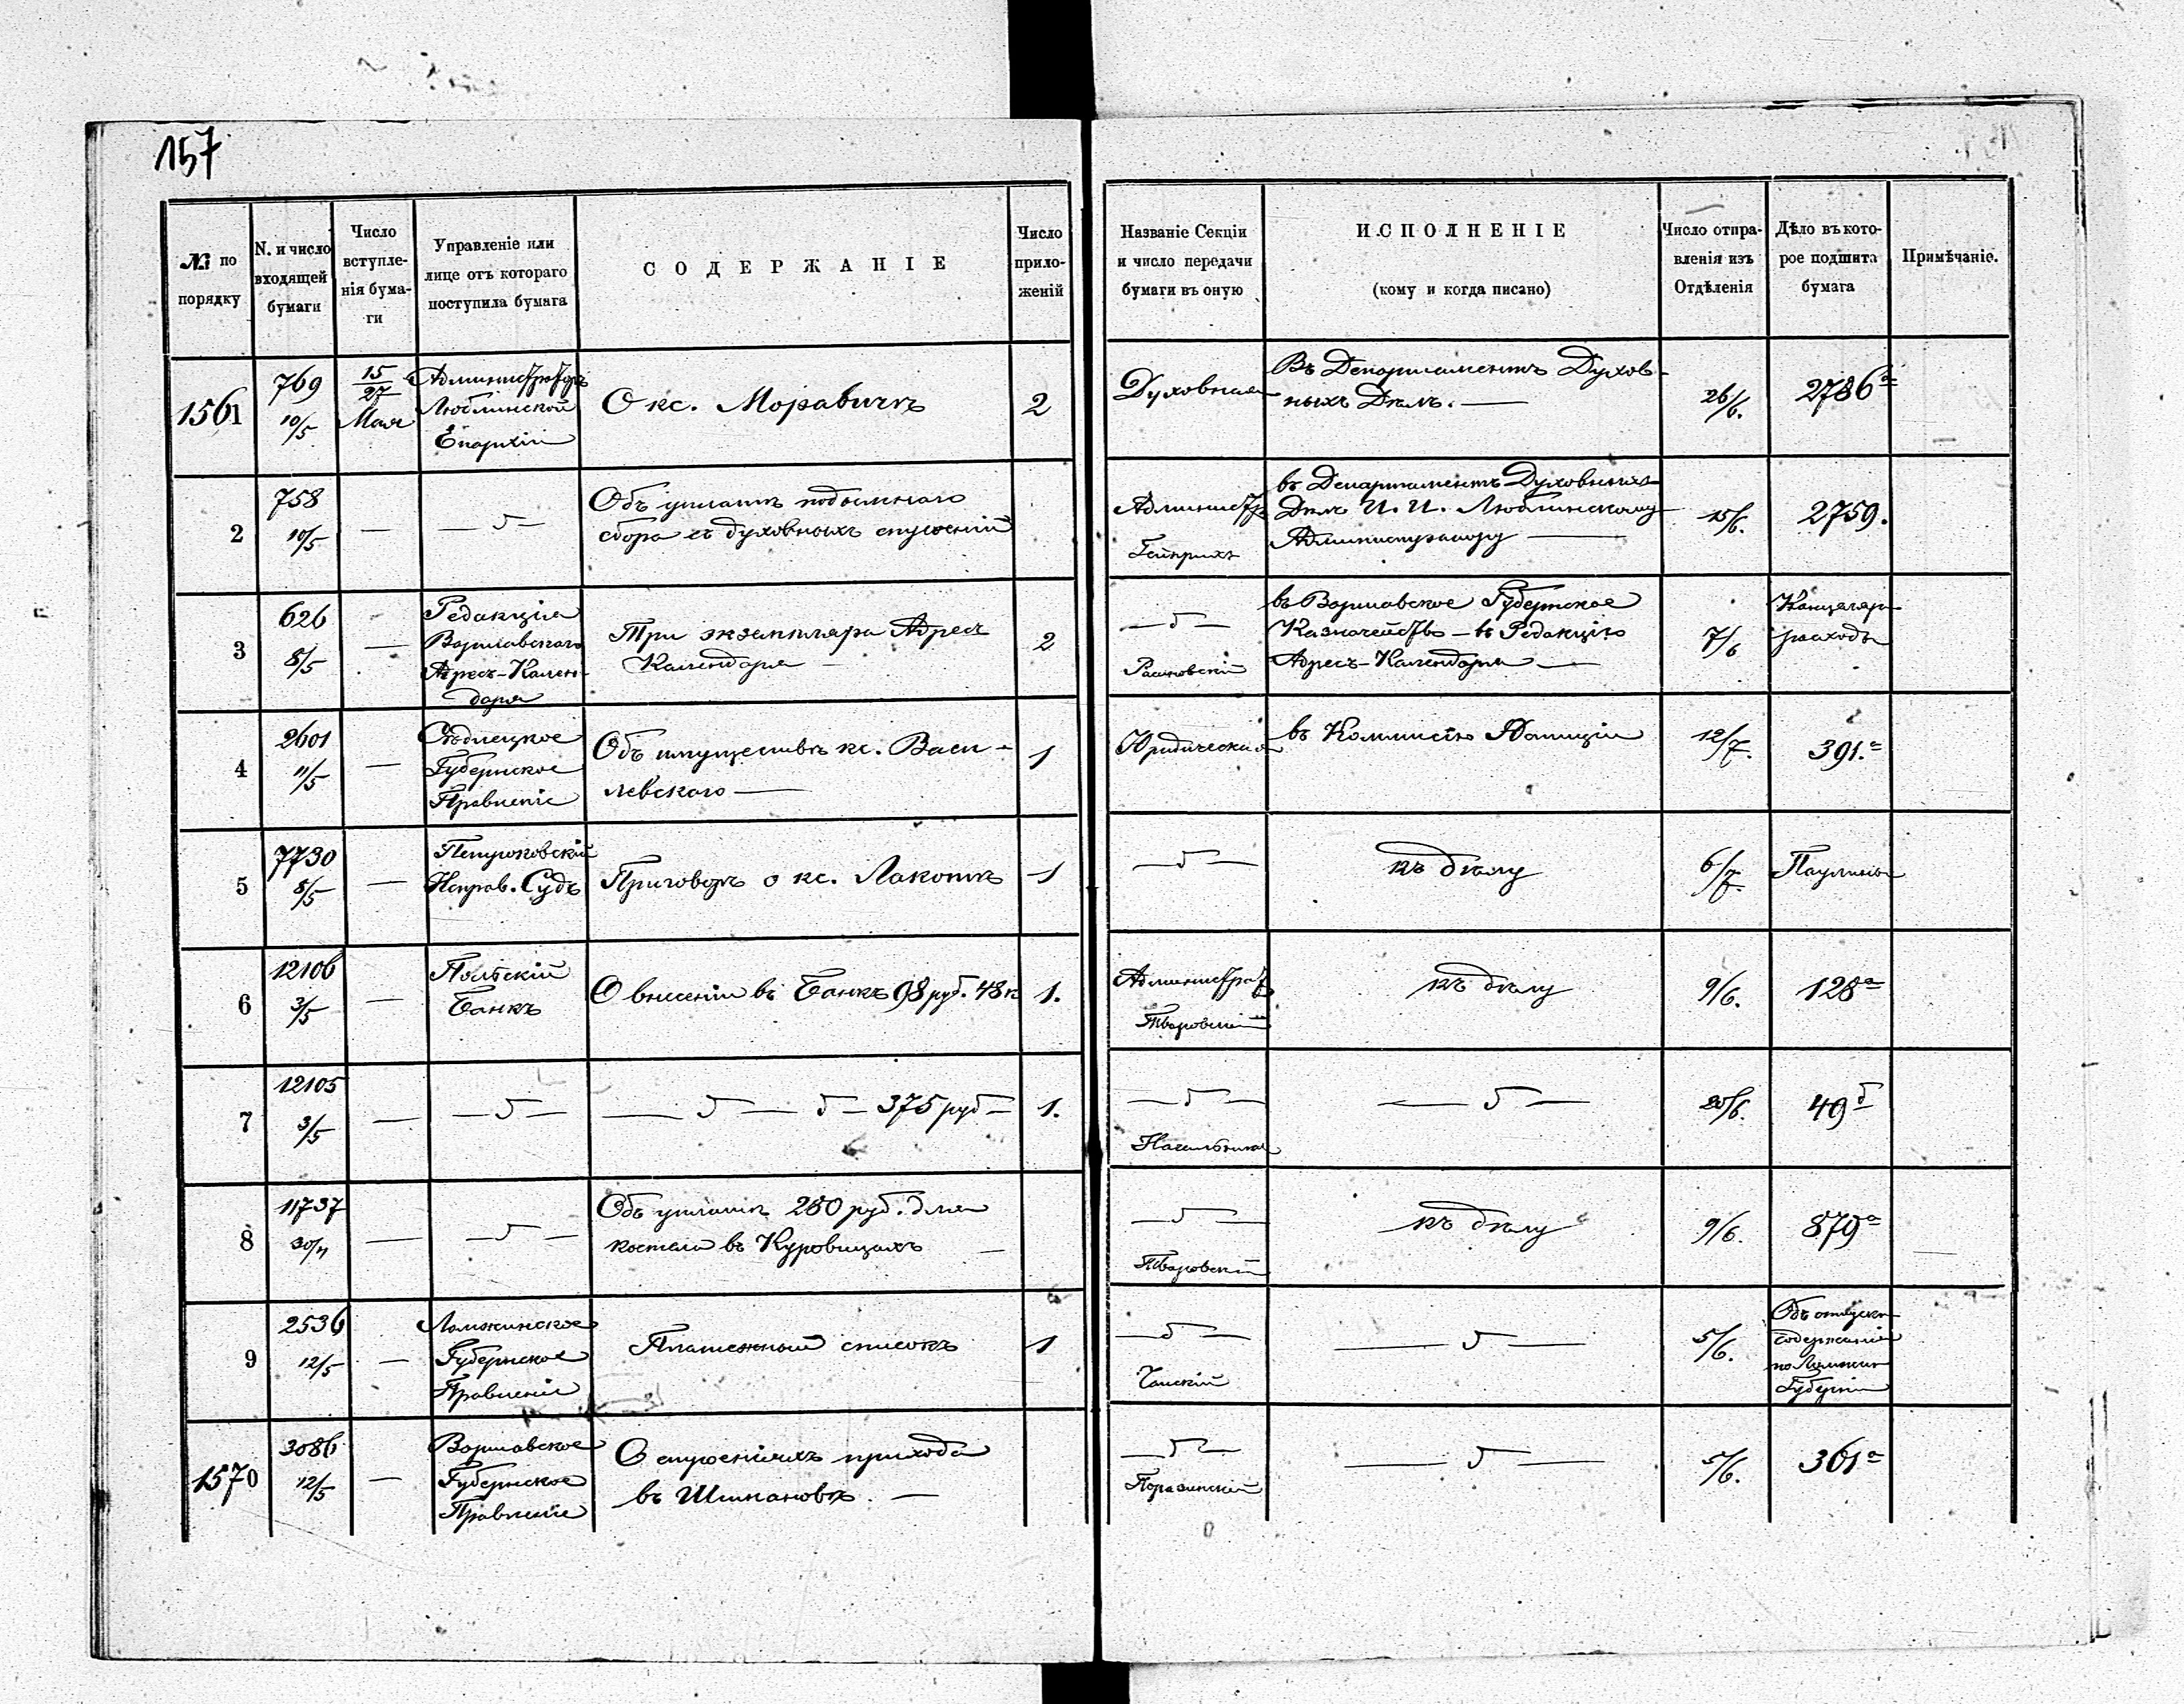 157
№ по порядку
N. и число входящей бумаги
Число вступленія бумаги
Управленіе или лице отъ котораго поступила бумага
СОДЕРЖАНІЕ
Число приложеній
Названіе Секціи и число передачи бумаги въ оную
ИСПОЛНЕНІЕ
(кому и когда писано)
Число отправленія изъ Отдѣленія
Дѣло въ которое подшита бумага
Примѣчаніе.
1561
769
10/5
15/27 Мая
Администраторъ
Люблинской
Епархіи
О кс. Моравичѣ
2
Духовная
Въ Департаментъ Духов-
ныхъ Дѣлъ. —
26/6.
2786 а
2
758
10/5
—
— 5 —
Объ уплатѣ подымнаго
сбора съ духовныхъ строеній
Администр
Гейнрихъ
въ Департаментъ Духовныхъ
Дѣлъ И. И. Люблинскому
Администратору —
15/6.
2759.
3
626
8/5
—
Редакція
Варшавскаго
Адресъ-Кален-
даря
Три экземпляра Адресъ
Календаря —
2
— 5 —
въ Варшавское Губернское
Казначейство — въ Редакцію
Адресъ-Календаря —
7/6
Канцеляр
расходы
4
2601
11/5
—
Сѣдлецкое
Губернское
Правленіе
Объ имуществѣ кс. Васи-
левскаго —
1
Юридическая
въ Коммисію Юстиціи
12/7.
391. а
5
7730
8/5
—
Петроковскій
Исправ. Судъ
Приговоръ о кс. Лакотѣ
1
— 5 —
къ дѣлу
6/7.
Паулины
6
12106
3/5
—
Польскій
Банкъ
О внесеніи въ Банкъ 98 руб. 48 к
1.
Администрат
Тваровскій
къ дѣлу
9/6.
128 а
7
12105
3/5
—
— 5 —
— 5 — 5 — 375 руб —
1.
— 5 —
Начальника
— 5 —
20/6.
49 б
8
11737
30/4
—
— 5 —
Объ уплатѣ 280 руб. для
костела въ Куровицахъ —
— 5 —
Тваровскій
къ дѣлу
9/6.
879 а
9
2536
12/5
—
Ломжинское
Губернское
Правленіе
Платежный списокъ
1
— 5 —
— 5 —
5/6.
Объ отпускѣ
содержанія
по Ломжин
Губерніи
1570
3086
12/5
—
Варшавское
Губернское
Правленіе
О строеніяхъ прихода
въ Шимановѣ. —
— 5 —
Поразинскій
— 5 —
5/6.
361 а